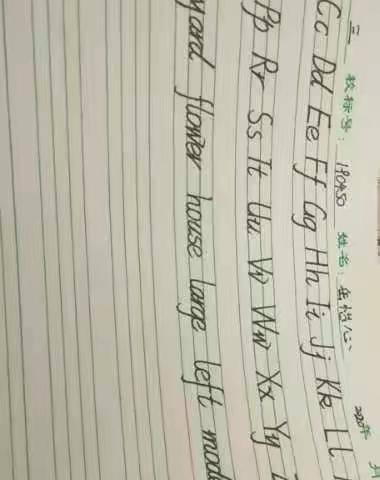 二 校标号: 190450 姓名:
2020年 月
Cc Dd Ee Ff Gg Hh Ii Jj Kk Ll
Pp Rr Ss Tt Uu Vv Ww Xx Yy
yard flower house large left